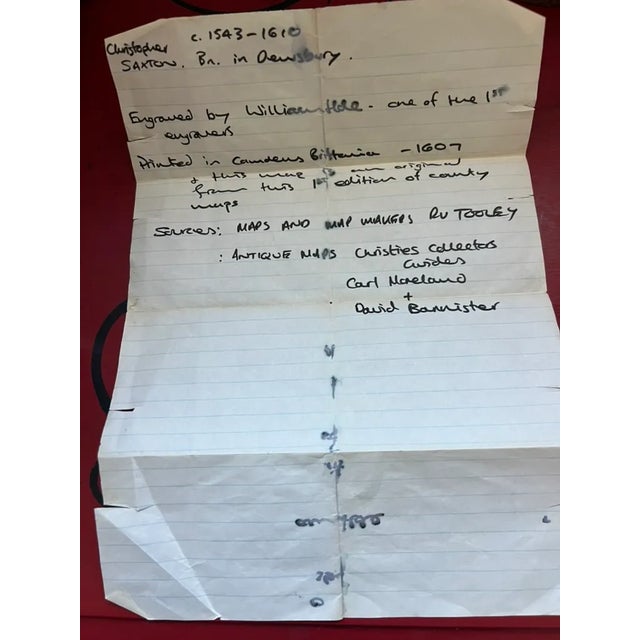 Christopher c. 1543-1610
SAXTON. Bn. in Dewsbury.
Engraved by William Hole - one of the 1st
engravers
Printed in Camdens Brittania - 1607
+ this map is an original
from this 1st edition of county
maps
Sources: MAPS AND MAP MAKERS RV TOOLEY
: ANTIQUE MAPS Christies Collectors
Guides
Carl Moreland
+
David Bannister